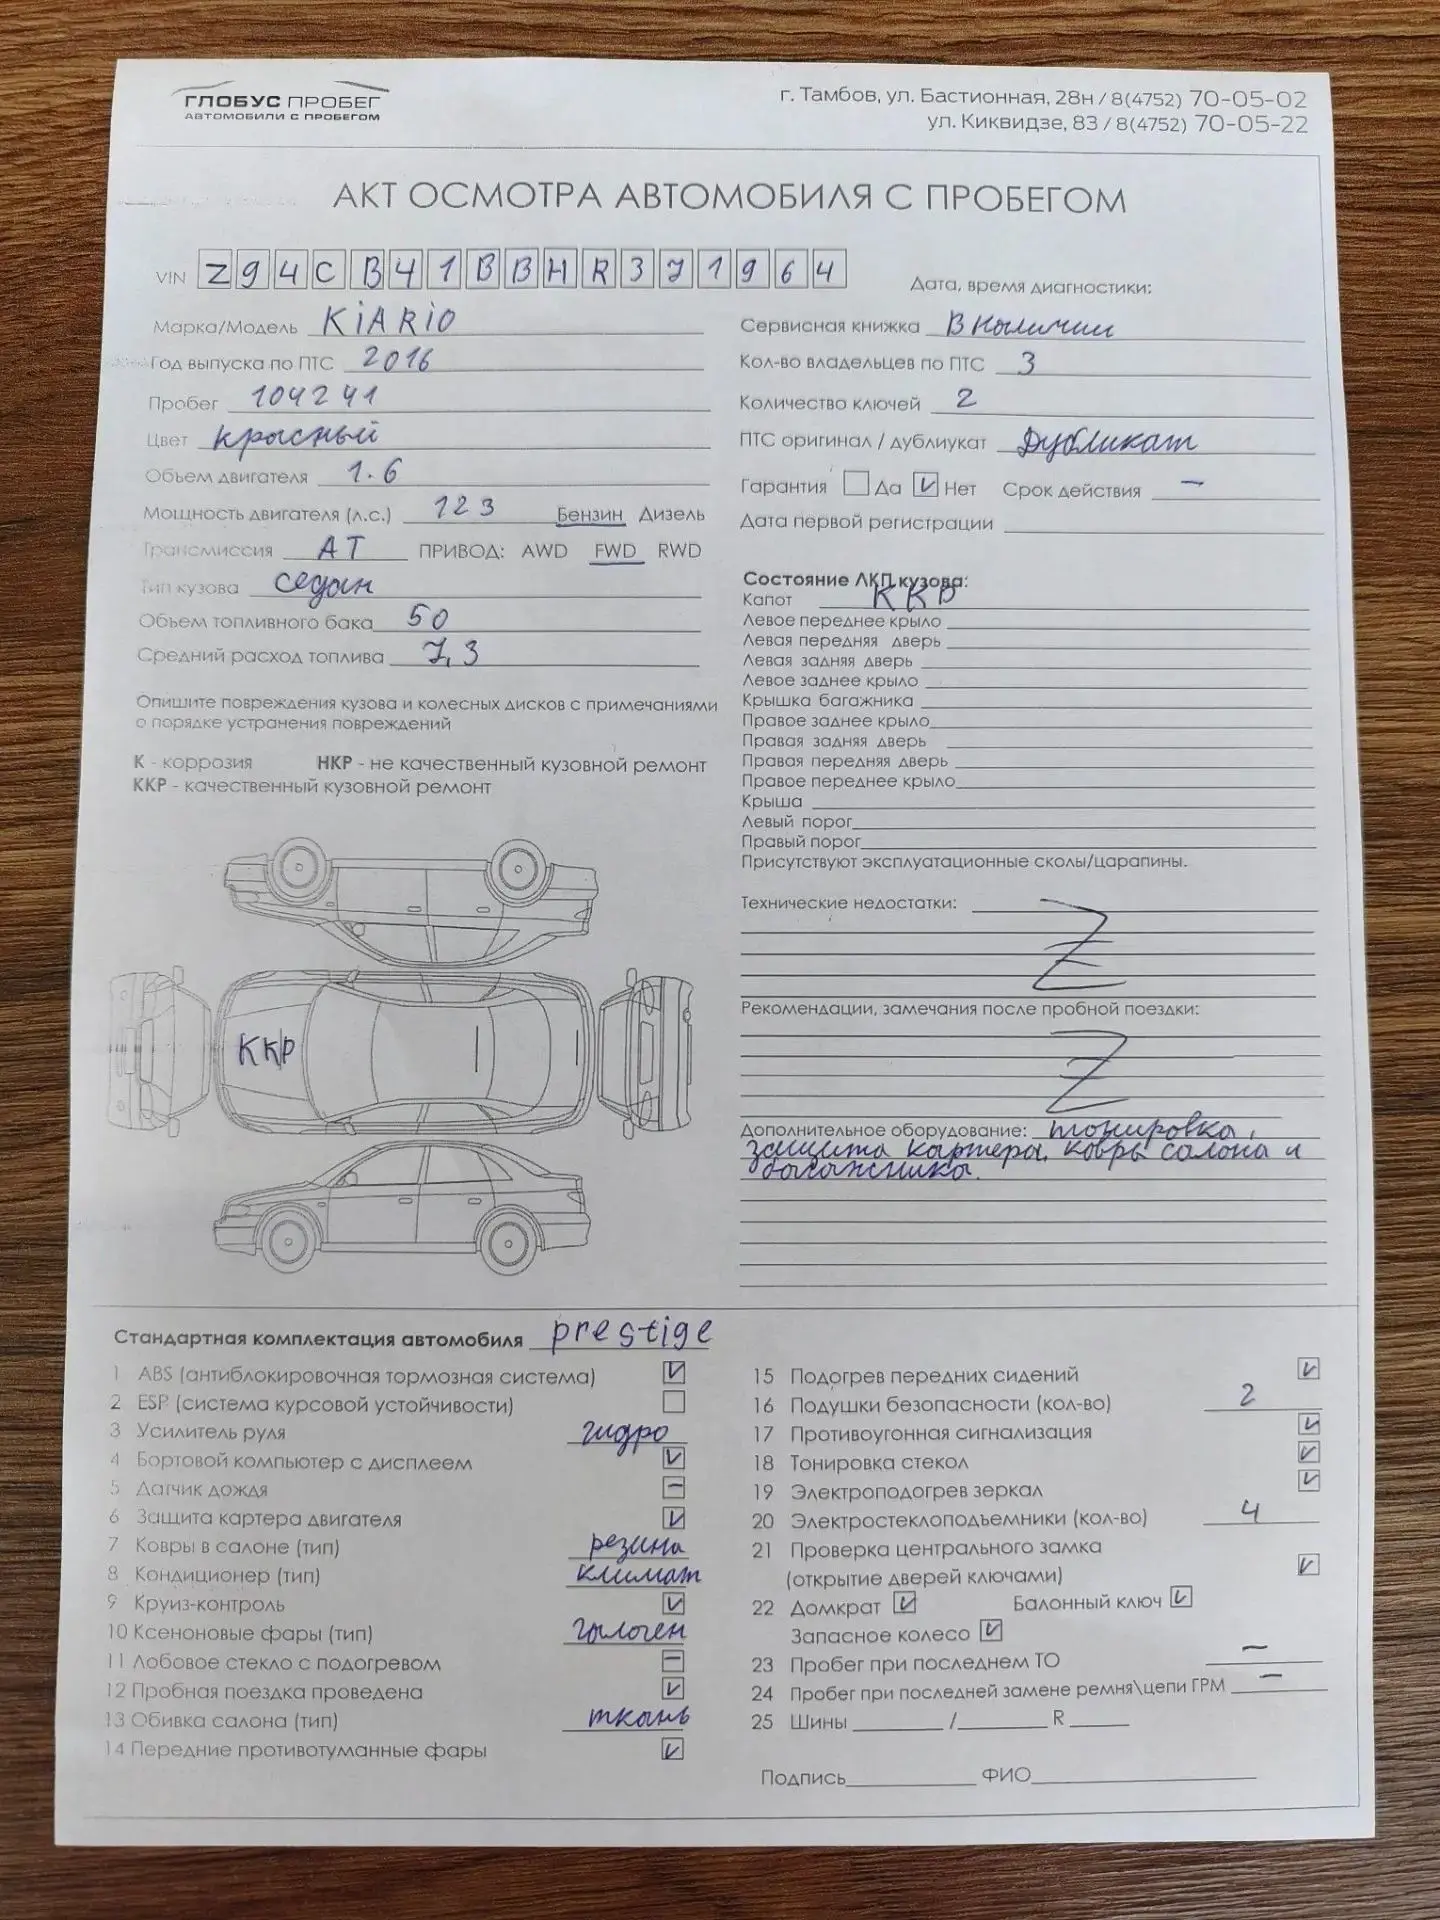 ГЛОБУС ПРОБЕГ
АВТОМОБИЛИ С ПРОБЕГОМ
г. Тамбов, ул. Бастионная, 28н / 8(4752) 70-05-02
ул. Киквидзе, 83 / 8(4752) 70-05-22
АКТ ОСМОТРА АВТОМОБИЛЯ С ПРОБЕГОМ
VIN Z94CB41BBHR371964
Дата, время диагностики:
Марка/Модель KiA RiO
Год выпуска по ПТС 2016
Пробег 104241
Цвет красный
Объем двигателя 1.6
Мощность двигателя (л.с.) 123 Бензин Дизель
Трансмиссия АТ ПРИВОД: AWD FWD RWD
Тип кузова седан
Объем топливного бака 50
Средний расход топлива 7,3
Опишите повреждения кузова и колесных дисков с примечаниями
о порядке устранения повреждений
К - коррозия НКР - не качественный кузовной ремонт
ККР - качественный кузовной ремонт
ККР
Сервисная книжка В наличии
Кол-во владельцев по ПТС 3
Количество ключей 2
ПТС оригинал / дублиукат Дубликат
Гарантия Да Нет Срок действия —
Дата первой регистрации
Состояние ЛКП кузова:
Капот ККР
Левое переднее крыло
Левая передняя дверь
Левая задняя дверь
Левое заднее крыло
Крышка багажника
Правое заднее крыло
Правая задняя дверь
Правая передняя дверь
Правое переднее крыло
Крыша
Левый порог
Правый порог
Присутствуют эксплуатационные сколы/царапины.
Технические недостатки:
Рекомендации, замечания после пробной поездки:
Дополнительное оборудование: тонировка,
защита картера, ковры салона и
багажника.
Стандартная комплектация автомобиля prestige
1 ABS (антиблокировочная тормозная система)
2 ESP (система курсовой устойчивости)
3 Усилитель руля гидро
4 Бортовой компьютер с дисплеем
5 Датчик дождя
6 Защита картера двигателя
7 Ковры в салоне (тип) резина
8 Кондиционер (тип) климат
9 Круиз-контроль
10 Ксеноновые фары (тип) галоген
11 Лобовое стекло с подогревом
12 Пробная поездка проведена
13 Обивка салона (тип) ткань
14 Передние противотуманные фары
15 Подогрев передних сидений
16 Подушки безопасности (кол-во) 2
17 Противоугонная сигнализация
18 Тонировка стекол
19 Электроподогрев зеркал
20 Электростеклоподъемники (кол-во) 4
21 Проверка центрального замка
(открытие дверей ключами)
22 Домкрат Балонный ключ
Запасное колесо
23 Пробег при последнем ТО —
24 Пробег при последней замене ремня\цепи ГРМ —
25 Шины / R
Подпись ФИО